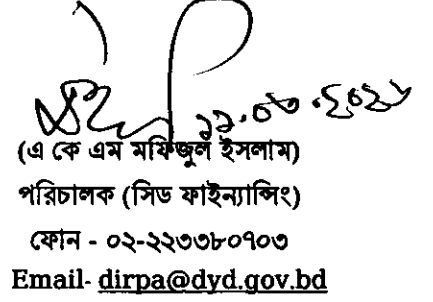 (এ কে এম মফিজুল ইসলাম)
পরিচালক (সিড ফাইন্যান্সিং)
ফোন - ০২-২২৩৩৮০৭০৩
Email- dirpa@dyd.gov.bd